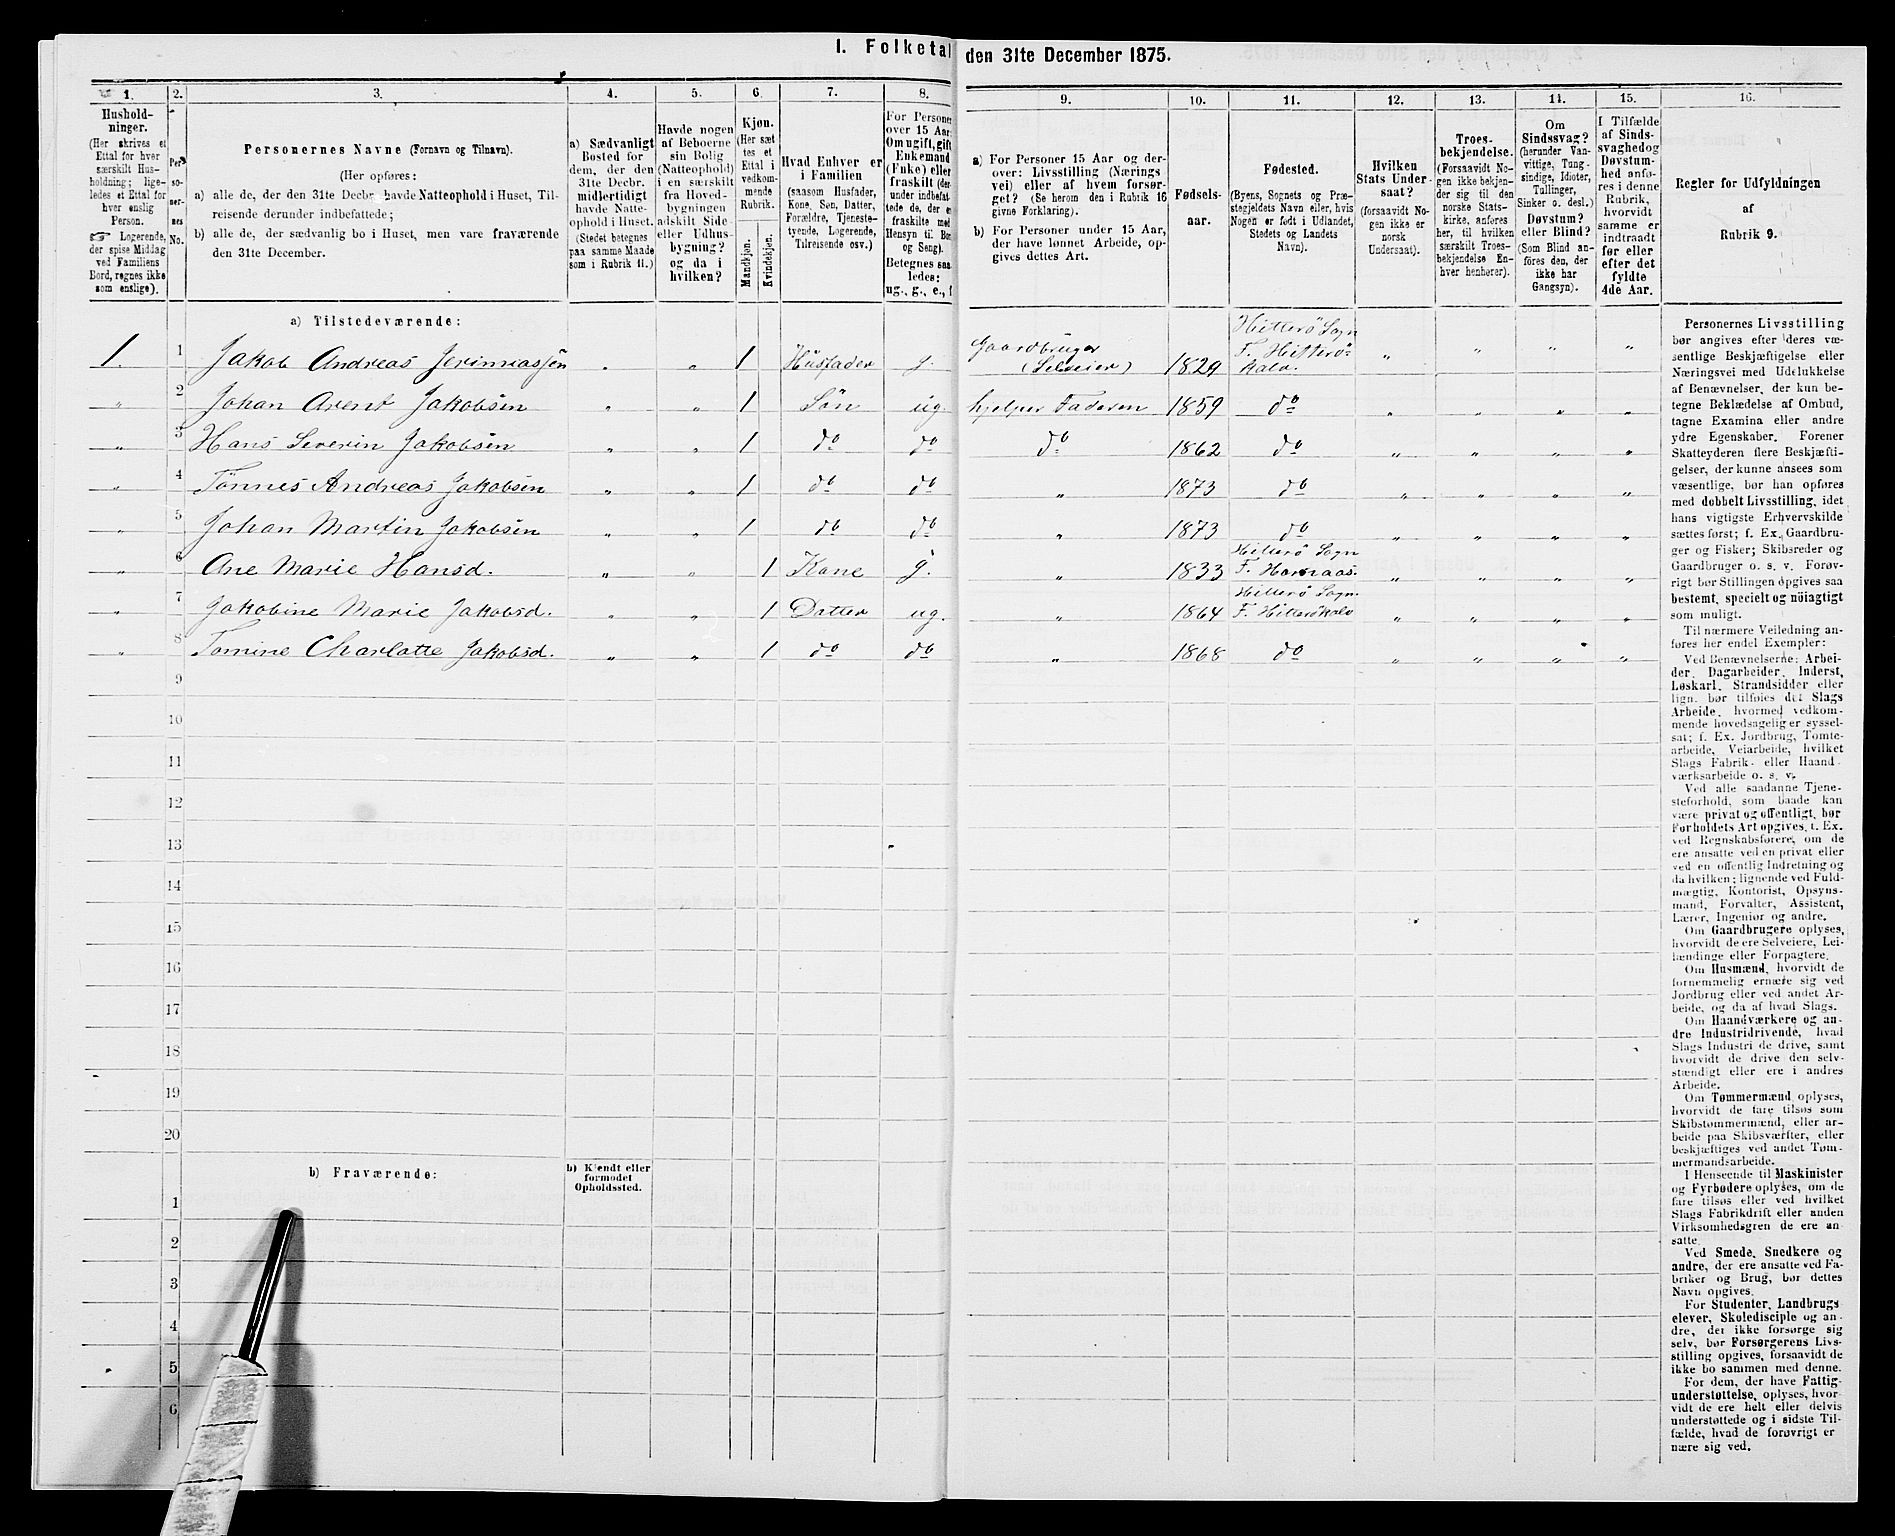 I. Folketal den 31te December 1875.
1. 2. 3. 4. 5. 6. 7. 8. 9. 10. 11. 12. 13. 14. 15. 16.
Hushold-
ninger.
(Her skrives et
Ettal for hver
særskilt Hus-
holdning; lige-
ledes et Ettal for
hver enslig
Person.
☞ Logerende,
der spise Middag
ved Familiens
Bord, regnes ikke
som enslige).
Per-
so-
ner-
nes
No.
Personernes Navne (Fornavn og Tilnavn).
(Her opføres:
a) alle de, der den 31te Decbr. havde Natteophold i Huset, Til-
reisende derunder indbefattede;
b) alle de, der sædvanlig bo i Huset, men vare fraværende
den 31te December.
a) Sædvanligt
Bosted for
dem, der den
31te Decbr.
midlertidigt
havde Natte-
ophold i Huset.
(Stedet betegnes
paa samme Maade
som i Rubrik 11.)
Havde nogen
af Beboerne
sin Bolig
(Natteophold)
i en særskilt
fra Hoved-
bygningen
adskilt Side-
eller Udhus-
bygning?
og da i
hvilken?
Kjøn.
(Her sæt-
tes et
Ettal i
vedkom-
mende
Rubrik.
Mandkjøn.
Kvindekjøn.
Hvad Enhver er
i Familien
(saasom Husfader,
Kone, Søn, Datter,
Forældre, Tjeneste-
tyende, Logerende,
Tilreisende osv.)
For Personer
over 15 Aar:
Om ugift, gift,
Enkemand
(Enke) eller
fraskilt (der-
under indbefat-
tede de, der er
fraskilte med
Hensyn til Bord
og Seng).
Betegnes saa-
ledes:
ug., g., e., f.
a) For Personer 15 Aar og der-
over: Livsstilling (Nærings-
vei) eller af hvem forsør-
get? (Se herom den i Rubrik 16
givne Forklaring).
b) For Personer under 15 Aar,
der have lønnet Arbeide, op-
gives dettes Art.
Fødsels-
aar.
Fødested.
(Byens, Sognets og Præ-
stegjeldets Navn eller, hvis
Nogen er født i Udlandet,
Stedets og Landets
Navn).
Hvilken
Stats Under-
saat?
(forsaavidt No-
gen ikke er
norsk
Undersaat).
Troes-
bekjendelse.
(Forsaavidt No-
gen ikke bekjen-
der sig til den
norske Stats-
kirke, anføres
her, til hvilken
særskilt Troes-
bekjendelse En-
hver henhører).
Om
Sindssvag?
(herunder Van-
vittige, Tung-
sindige, Idioter,
Tullinger,
Sinker o. desl.)
Døvstum?
eller Blind?
(Som Blind an-
føres den, der
ikke har
Gangsyn).
I Tilfælde
af Sinds-
svaghed og
Døvstum-
hed anfø-
res i denne
Rubrik,
hvorvidt
samme er
indtraadt
før eller
efter det
fyldte
4de Aar.
Regler for Udfyldningen
af
Rubrik 9.
a) Tilstedeværende:
1. 1 Jakob Andreas Jerimiassen „ „ 1 Husfader g. Gaardbruger (Selveier) 1829 Hitterö Sogn F. Hitterö-kalv. „ „ „ „
„ 2 Johan Arent Jakobsen „ „ 1 Sön ug. hjelper Faderen 1859 do „ „ „ „
„ 3 Hans Severin Jakobsen „ „ 1 do do do 1862 do „ „ „ „
„ 4 Tönnes Andreas Jakobsen „ „ 1 do do „ 1873 do „ „ „ „
„ 5 Johan Martin Jakobsen „ „ 1 do do „ 1873 do „ „ „ „
„ 6 Ane Marie Hansd. „ „ 1 Kone g. „ 1833 Hitterö Sogn F. „ „ „ „
„ 7 Jakobine Marie Jakobsd. „ „ 1 Datter ug. „ 1864 Hitterö Sogn. F. Hitterökalv „ „ „ „
„ 8 Tomine Charlotte Jakobsd. „ „ 1 do do „ 1868 do „ „ „ „
9
10
11
12
13
14
15
16
17
18
19
20
b) Fraværende:
b) Kjendt eller
formodet
Opholdssted.
1
2
3
4
5
6
Personernes Livsstilling
bør angives efter deres væ-
sentlige Beskjæftigelse eller
Næringsvei med Udelukkelse
af Benævnelser, der kun be-
tegne Beklædelse af Ombud,
tagne Examina eller andre
ydre Egenskaber. Forener
Skatteyderen flere Beskjæfti-
gelser, der kunne ansees som
væsentlige, bør han opføres
med dobbelt Livsstilling, idet
hans vigtigste Erhvervskilde
sættes først; f. Ex. Gaardbru-
ger og Fisker; Skibsreder og
Gaardbruger o. s. v. Forøv-
rigt bør Stillingen opgives saa
bestemt, specielt og nöiagtigt
som muligt.
Til nærmere Veiledning an-
føres her endel Exempler:
Ved Benævnelserne: Arbei-
der, Dagarbeider, Inderst,
Løskarl, Strandsidder eller
lign. bør tilføies det Slags
Arbeide, hvormed vedkom-
mende hovedsagelig er syssel-
sat; f. Ex. Jordbrug, Tomte-
arbeide, Veiarbeide, hvilket
Slags Fabrik- eller Haand-
værksarbeide o. s. v.
Ved alle saadanne Tjene-
steforhold, som baade kan
være privat og offentligt, bør
Forholdets Art opgives, t. Ex.
ved Regnskabsførere, om de
ere ansatte ved en privat eller
ved en offentlig Indretning og
da hvilken; lignende ved Fuld-
mægtig, Kontorist, Opsyns-
mand, Forvalter, Assistent,
Lærer, Ingeniør og andre.
Om Gaardbrugere oplyses,
hvorvidt de ere Selveiere, Lei-
lændinge eller Forpagtere.
Om Husmænd, hvorvidt de
fornemmelig ernære sig ved
Jordbrug eller ved andet Ar-
beide, og da af hvad Slags.
Om Haandværkere og an-
dre Industridrivende, hvad
Slags Industri de drive, samt
hvorvidt de drive den selv-
stændigt eller ere i andres
Arbeide.
Om Tømmermænd oplyses,
hvorvidt de fare tilsøs som
Skibstømmermænd, eller ar-
beide paa Skibsværfter, eller
beskjæftiges ved andet Tøm-
mermandsarbeide.
I Henseende til Maskinister
og Fyrbødere oplyses, om de
fare tilsøs eller ved hvilket
Slags Fabrikdrift eller anden
Virksomhedsgren de ere an-
satte.
Ved Smede, Snedkere og
andre, der ere ansatte ved Fa-
briker og Brug, bør dettes
Navn opgives.
For Studenter, Landbrugs-
elever, Skoledisciple og an-
dre, der ikke forsørge sig
selv, bør Forsørgerens Livs-
stilling opgives, forsaavidt de
ikke bo sammen med denne.
For dem, der have Fattig-
understøttelse, oplyses, hvor-
vidt de ere helt eller delvis
understøttede og i sidste Til-
fælde, hvad de forøvrigt er-
nære sig ved.